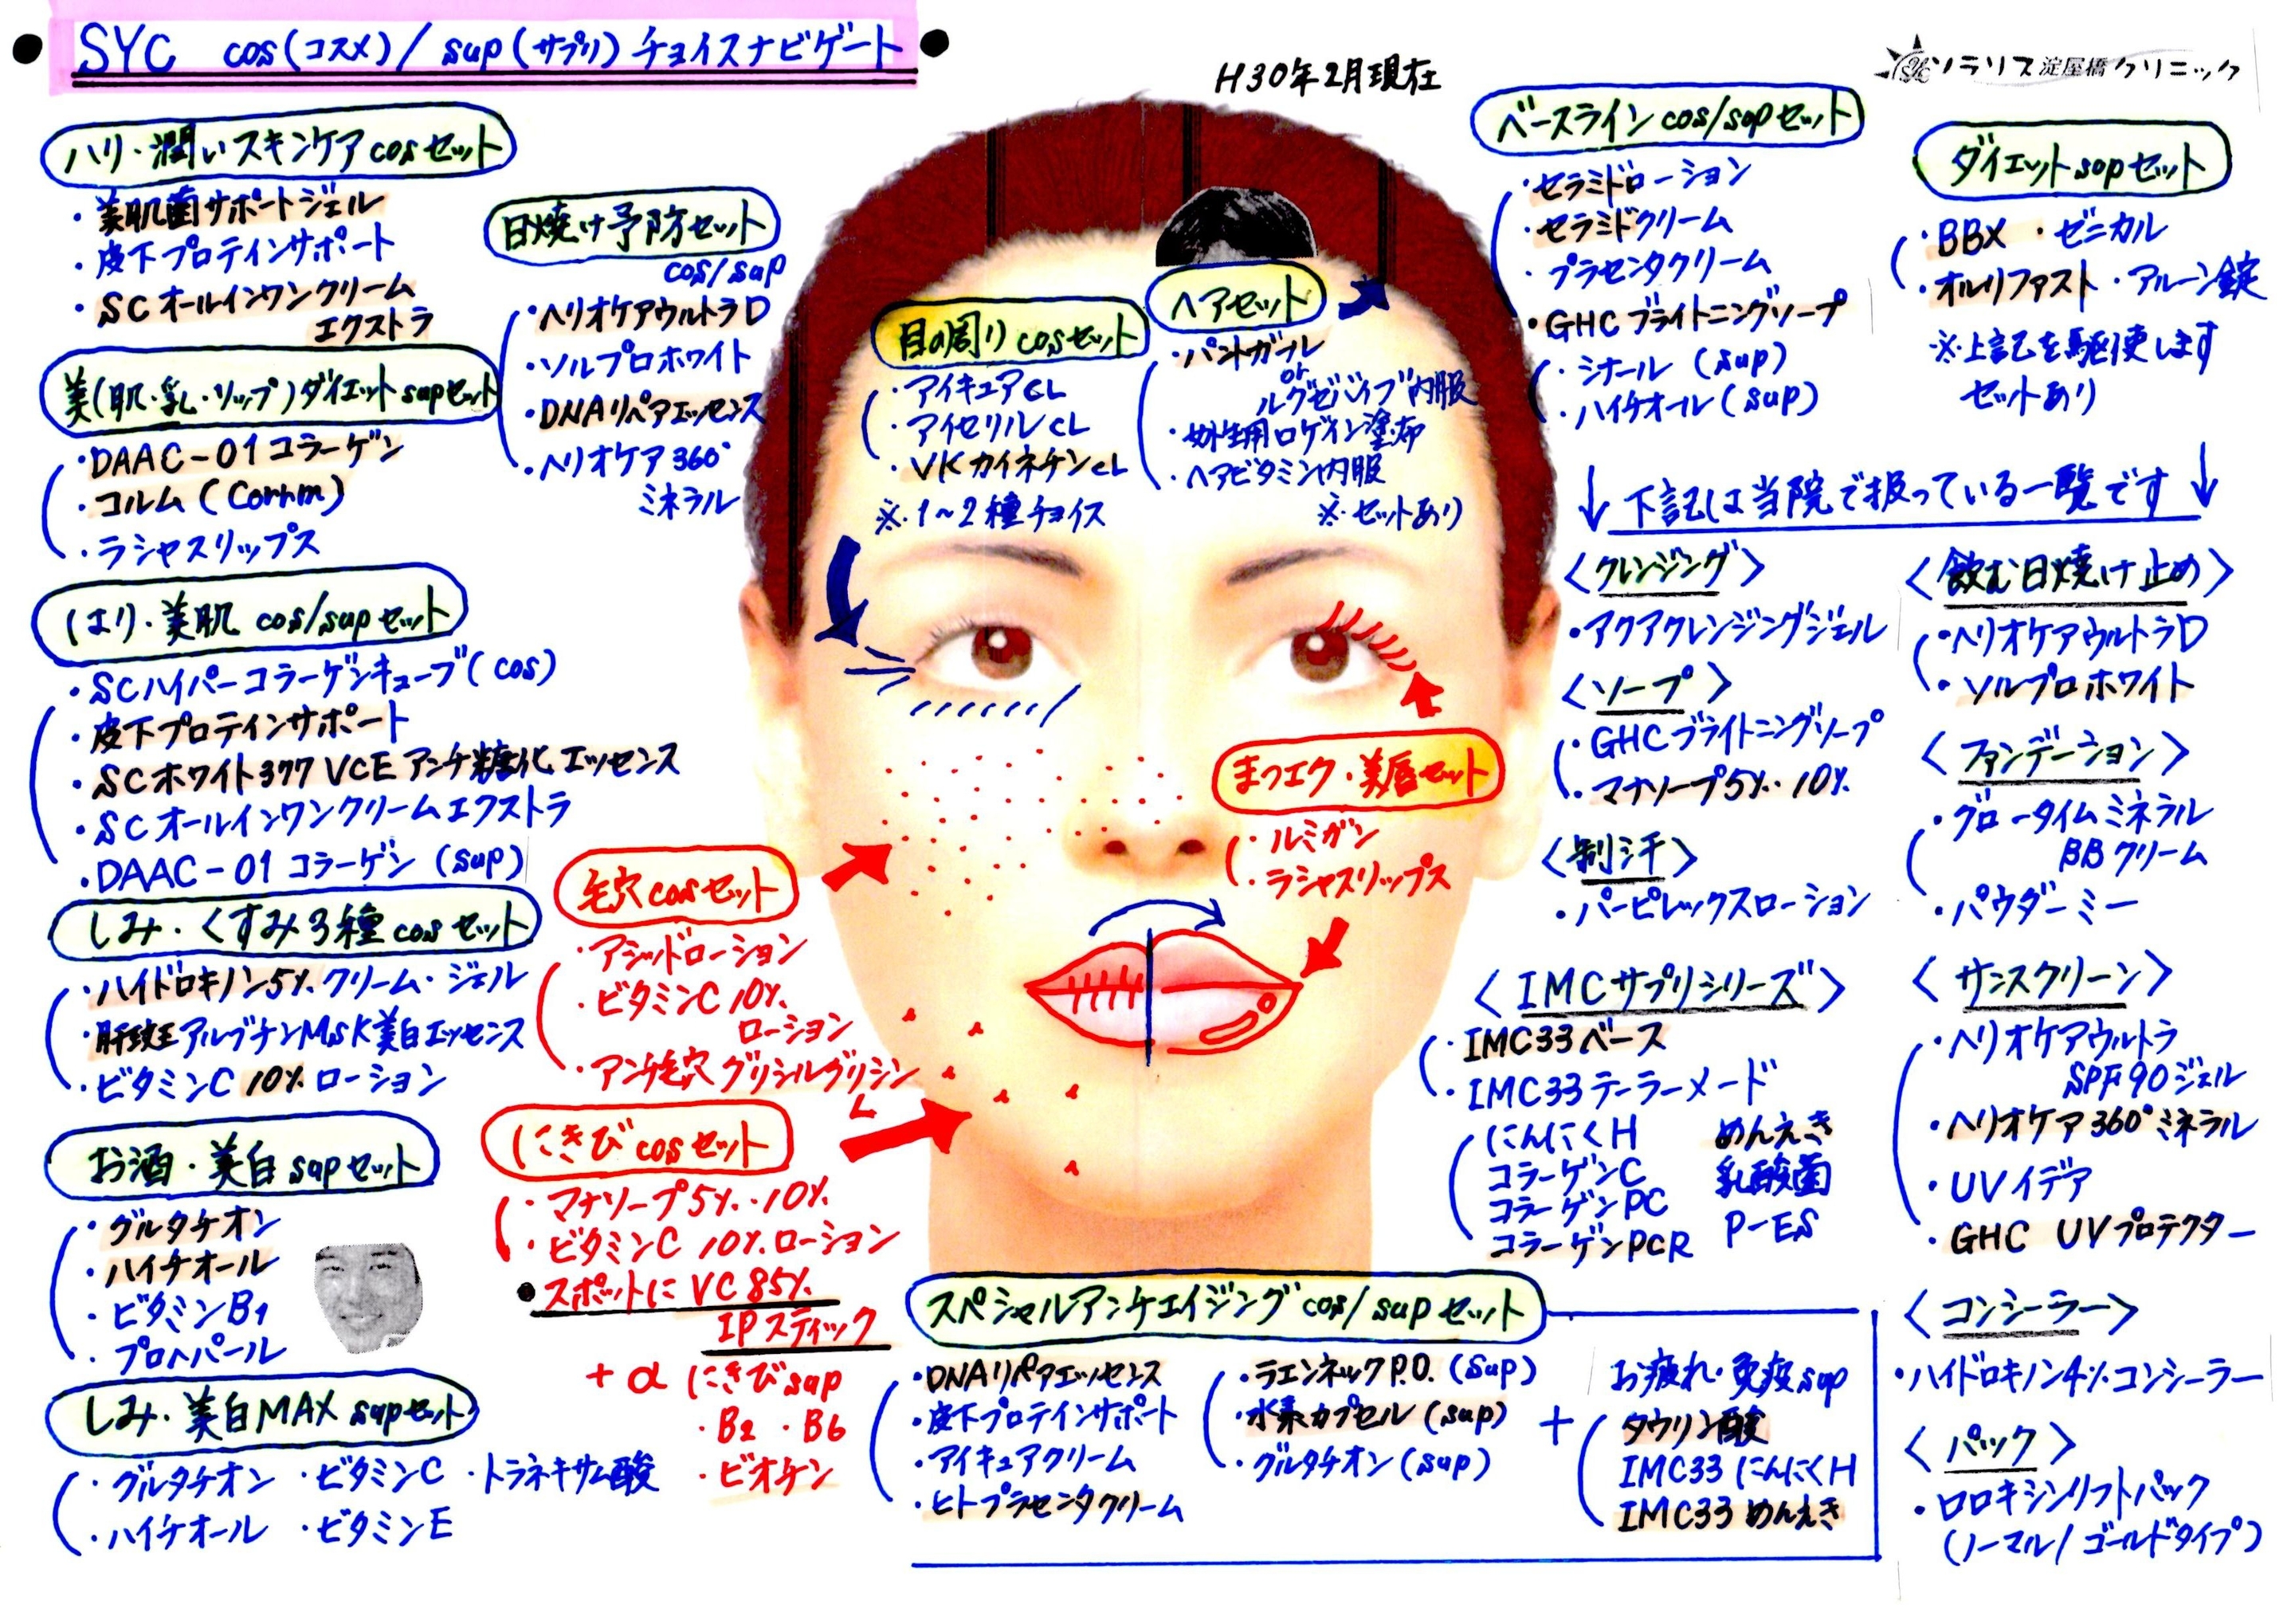 SYC cos(コスメ)/ sup(サプリ)チョイスナビゲート
H30年2月現在
ソラリス淀屋橋クリニック
ハリ・潤いスキンケアcosセット
・美肌菌サポートジェル
・皮下プロテインサポート
・SCオールインワンクリーム
エクストラ
美(肌・乳・リップ)ダイエットsupセット
・DAAC-01コラーゲン
・コルム(Cornm)
・ラシャスリップス
はり・美肌 cos/supセット
・SCハイパーコラーゲンキューブ(cos)
・皮下プロテインサポート
・SCホワイト377 VCEアンチ糖化エッセンス
・SCオールインワンクリームエクストラ
・DAAC-01コラーゲン(sup)
しみ・くすみ3種cosセット
・ハイドロキノン5%クリーム・ジェル
・肝斑王アルブチンMSK美白エッセンス
・ビタミンC 10%ローション
お酒・美白supセット
・グルタチオン
・ハイチオール
・ビタミンB1
・プロヘパール
しみ・美白MAX supセット
・グルタチオン ・ビタミンC ・トラネキサム酸
・ハイチオール ・ビタミンE
日焼け予防セット
cos/sup
・ヘリオケアウルトラD
・ソルプロホワイト
・DNAリペアエッセンス
・ヘリオケア360°
ミネラル
目の周りcosセット
・アイキュアCL
・アイセリルCL
・VKカイネチンCL
※1~2種チョイス
ヘアセット
・パントガール
or
ルグゼバイブ内服
・女性用ロゲイン塗布
・ヘアビタミン内服
※セットあり
毛穴cosセット
・アシッドローション
・ビタミンC 10%
ローション
・アンチ毛穴グリシルグリシン
L
にきびcosセット
・マナソープ5%・10%
・ビタミンC 10%ローション
●スポットにVC85%
IPスティック
+α にきびsup
・B2 ・B6
・ビオチン
まつエク・美唇セット
・ルミガン
・ラシャスリップス
スペシャルアンチエイジングcos/supセット
・DNAリペアエッセンス
・皮下プロテインサポート
・アイキュアクリーム
・ヒトプラセンタクリーム
・ラエンネックP.O.(sup)
・水素カプセル(sup)
・グルタチオン(sup)
+
お疲れ・免疫sup
タウリン酸
IMC33にんにくH
IMC33めんえき
ベースラインcos/supセット
・セラミドローション
・セラミドクリーム
・プラセンタクリーム
・GHCブライトニングソープ
・シナール(sup)
・ハイチオール(sup)
ダイエットsupセット
・BBX ・ゼニカル
・オルリファスト ・アルーン錠
※上記を駆使します
セットあり
↓下記は当院で扱っている一覧です↓
<クレンジング>
・アクアクレンジングジェル
<ソープ>
・GHCブライトニングソープ
・マナソープ5%・10%
<制汗>
・パーピレックスローション
<IMCサプリシリーズ>
・IMC33ベース
・IMC33テーラーメード
にんにくH めんえき
コラーゲンC 乳酸菌
コラーゲンPC P-ES
コラーゲンPCR
<飲む日焼け止め>
・ヘリオケアウルトラD
・ソルプロホワイト
<ファンデーション>
・グロータイムミネラル
BBクリーム
・パウダーミー
<サンスクリーン>
・ヘリオケアウルトラ
SPF90ジェル
・ヘリオケア360°ミネラル
・UVイデア
・GHC UVプロテクター
<コンシーラー>
・ハイドロキノン4%コンシーラー
<パック>
・ロロキシンリフトパック
(ノーマル/ゴールドタイプ)